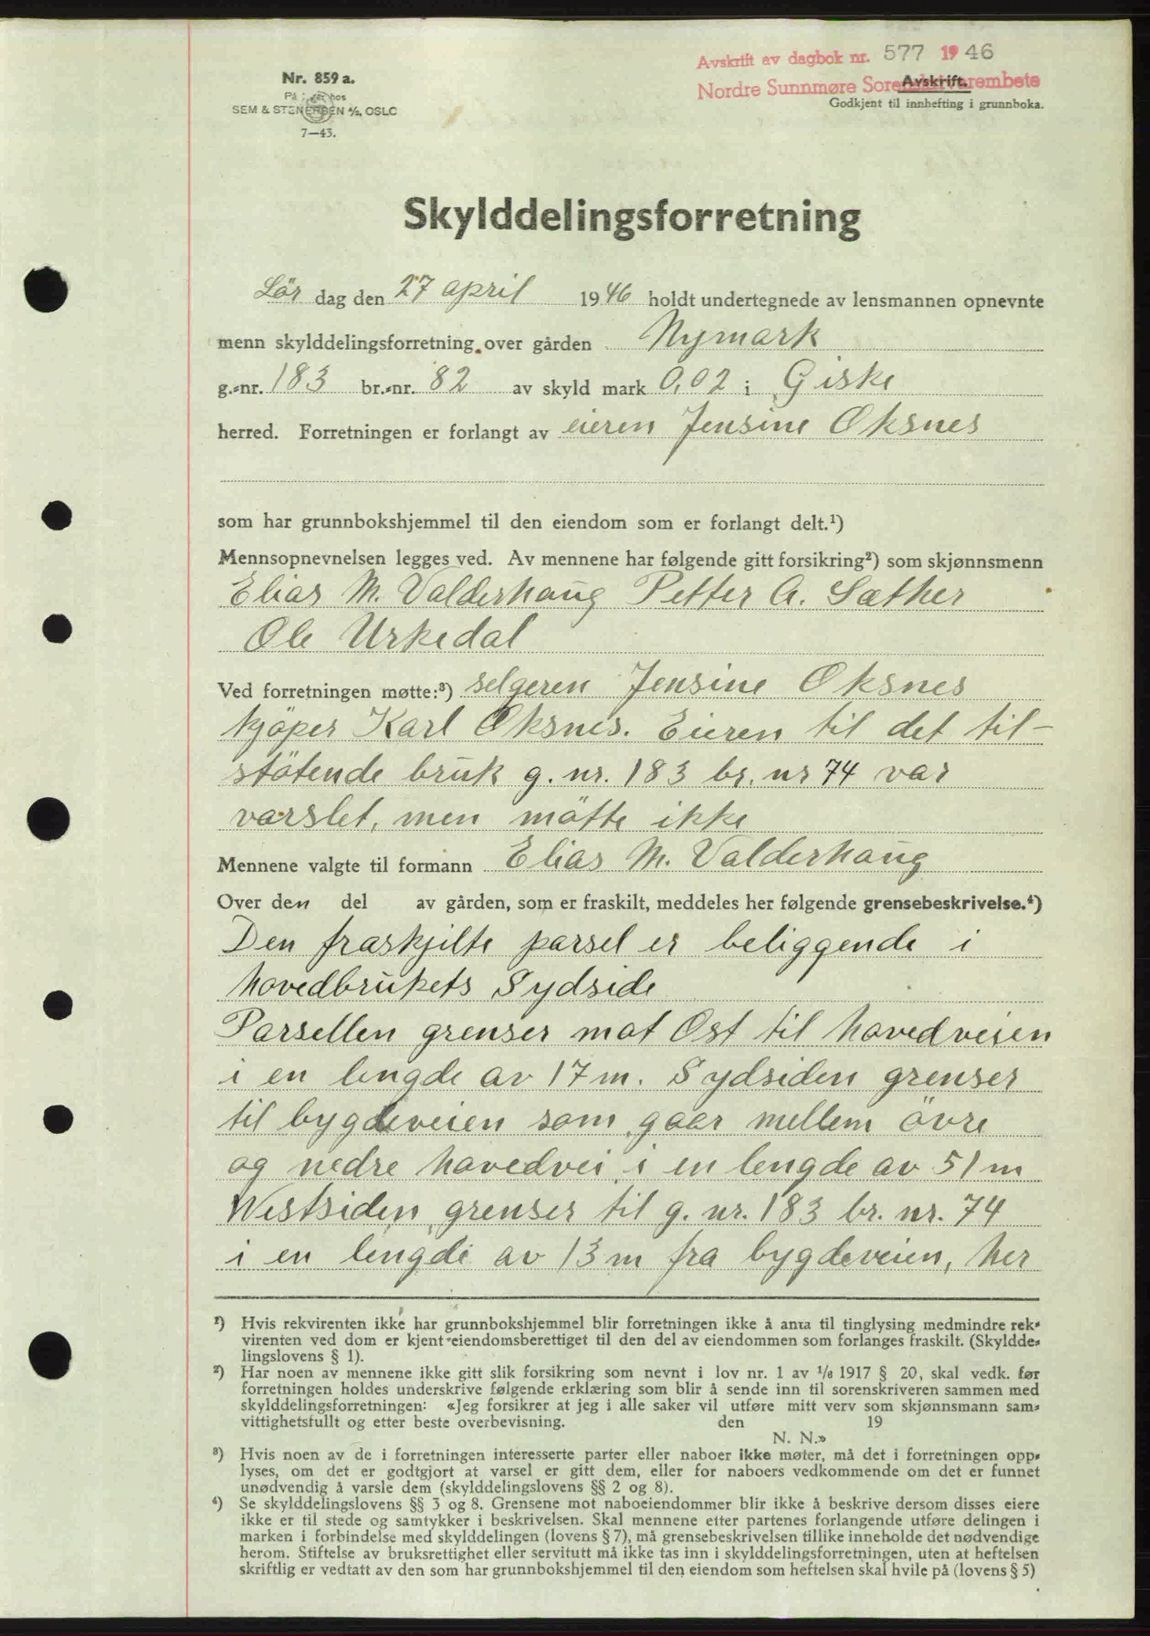 Avskrift av dagbok nr. 577 1946
Nordre Sunnmøre Sorenskriverembete
Avskrift.
Godkjent til innhefting i grunnboka.
Nr. 859 a.
På hos
SEM & STENERSEN A/S, OSLO
7—43.
Skylddelingsforretning
Lör dag den 27 april 1946 holdt undertegnede av lensmannen opnevnte
menn skylddelingsforretning over gården Nymark
g.-nr. 183 br.-nr. 82 av skyld mark 0,02 i Giske
herred. Forretningen er forlangt av eieren Jensine Oksnes
som har grunnbokshjemmel til den eiendom som er forlangt delt.¹)
Mennsopnevnelsen legges ved. Av mennene har følgende gitt forsikring²) som skjønnsmenn
Elias M. Valderhaug Petter A. Sæther
Ole Urkedal
Ved forretningen møtte:³) selgeren Jensine Oksnes
kjöper Karl Oksnes. Eieren til det til-
stötende bruk g. nr. 183 br. nr 74 var
varslet, men mötte ikke
Mennene valgte til formann Elias M. Valderhaug
Over den del av gården, som er fraskilt, meddeles her følgende grensebeskrivelse.⁴)
Den fraskjilte parsel er beliggende i
hovedbrukets Sydside
Parsellen grenser mot Ost til hovedveien
i en lengde av 17 m. Sydsiden grenser
til bygdeveien som gaar mellem övre
og nedre hovedvei i en lengde av 51 m
Westsiden grenser til g. nr. 183 br. nr. 74
i en lengde av 13 m fra bygdeveien, her
¹) Hvis rekvirenten ikke har grunnbokshjemmel blir forretningen ikke å anta til tinglysing medmindre rek-
virenten ved dom er kjent eiendomsberettiget til den del av eiendommen som forlanges fraskilt. (Skyldde-
lingslovens § 1).
²) Har noen av mennene ikke gitt slik forsikring som nevnt i lov nr. 1 av 1/6 1917 § 20, skal vedk. før
forretningen holdes underskrive følgende erklæring som blir å sende inn til sorenskriveren sammen med
skylddelingsforretningen: «Jeg forsikrer at jeg i alle saker vil utføre mitt verv som skjønnsmann sam-
vittighetsfullt og etter beste overbevisning. den 19
N. N.»
³) Hvis noen av de i forretningen interesserte parter eller naboer ikke møter, må det i forretningen opp-
lyses, om det er godtgjort at varsel er gitt dem, eller for naboers vedkommende om det er funnet
unødvendig å varsle dem (skylddelingslovens §§ 2 og 8).
⁴) Se skylddelingslovens §§ 3 og 8. Grensene mot naboeiendommer blir ikke å beskrive dersom disses eiere
ikke er til stede og samtykker i beskrivelsen. Skal mennene etter partenes forlangende utføre delingen i
marken i forbindelse med skylddelingen (lovens § 7), må grensebeskrivelsen tillike inneholde det nødvendige
herom. Stiftelse av bruksrettighet eller servitutt må ikke tas inn i skylddelingsforretningen, uten at heftelsen
skriftlig er vedtatt av den som har grunnbokshjemmel til den eiendom som heftelsen skal hvile på (lovens § 5)